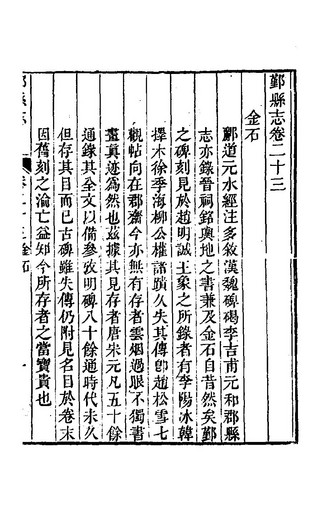 鄞縣志卷二十三
金石
酈道元水經注多敘漢魏碑碣李吉甫元和郡縣
志亦錄晉祠銘輿地之書兼及金石自昔然矣鄞
之碑刻見於趙明誠王象之所錄者有李陽冰韓
擇木徐季海柳公權諸蹟久失其傳卽趙松雪七
觀帖向在郡齋今亦無有存者雲烟過眼不獨書
畫眞迹爲然也茲據其見存者唐宋元凡五十餘
通錄其全文以備參攷明碑八十餘通時代未久
但存其目而已古碑雖失傳仍附見名目於卷末
因舊刻之淪亡益知今所存者之當寶貴也